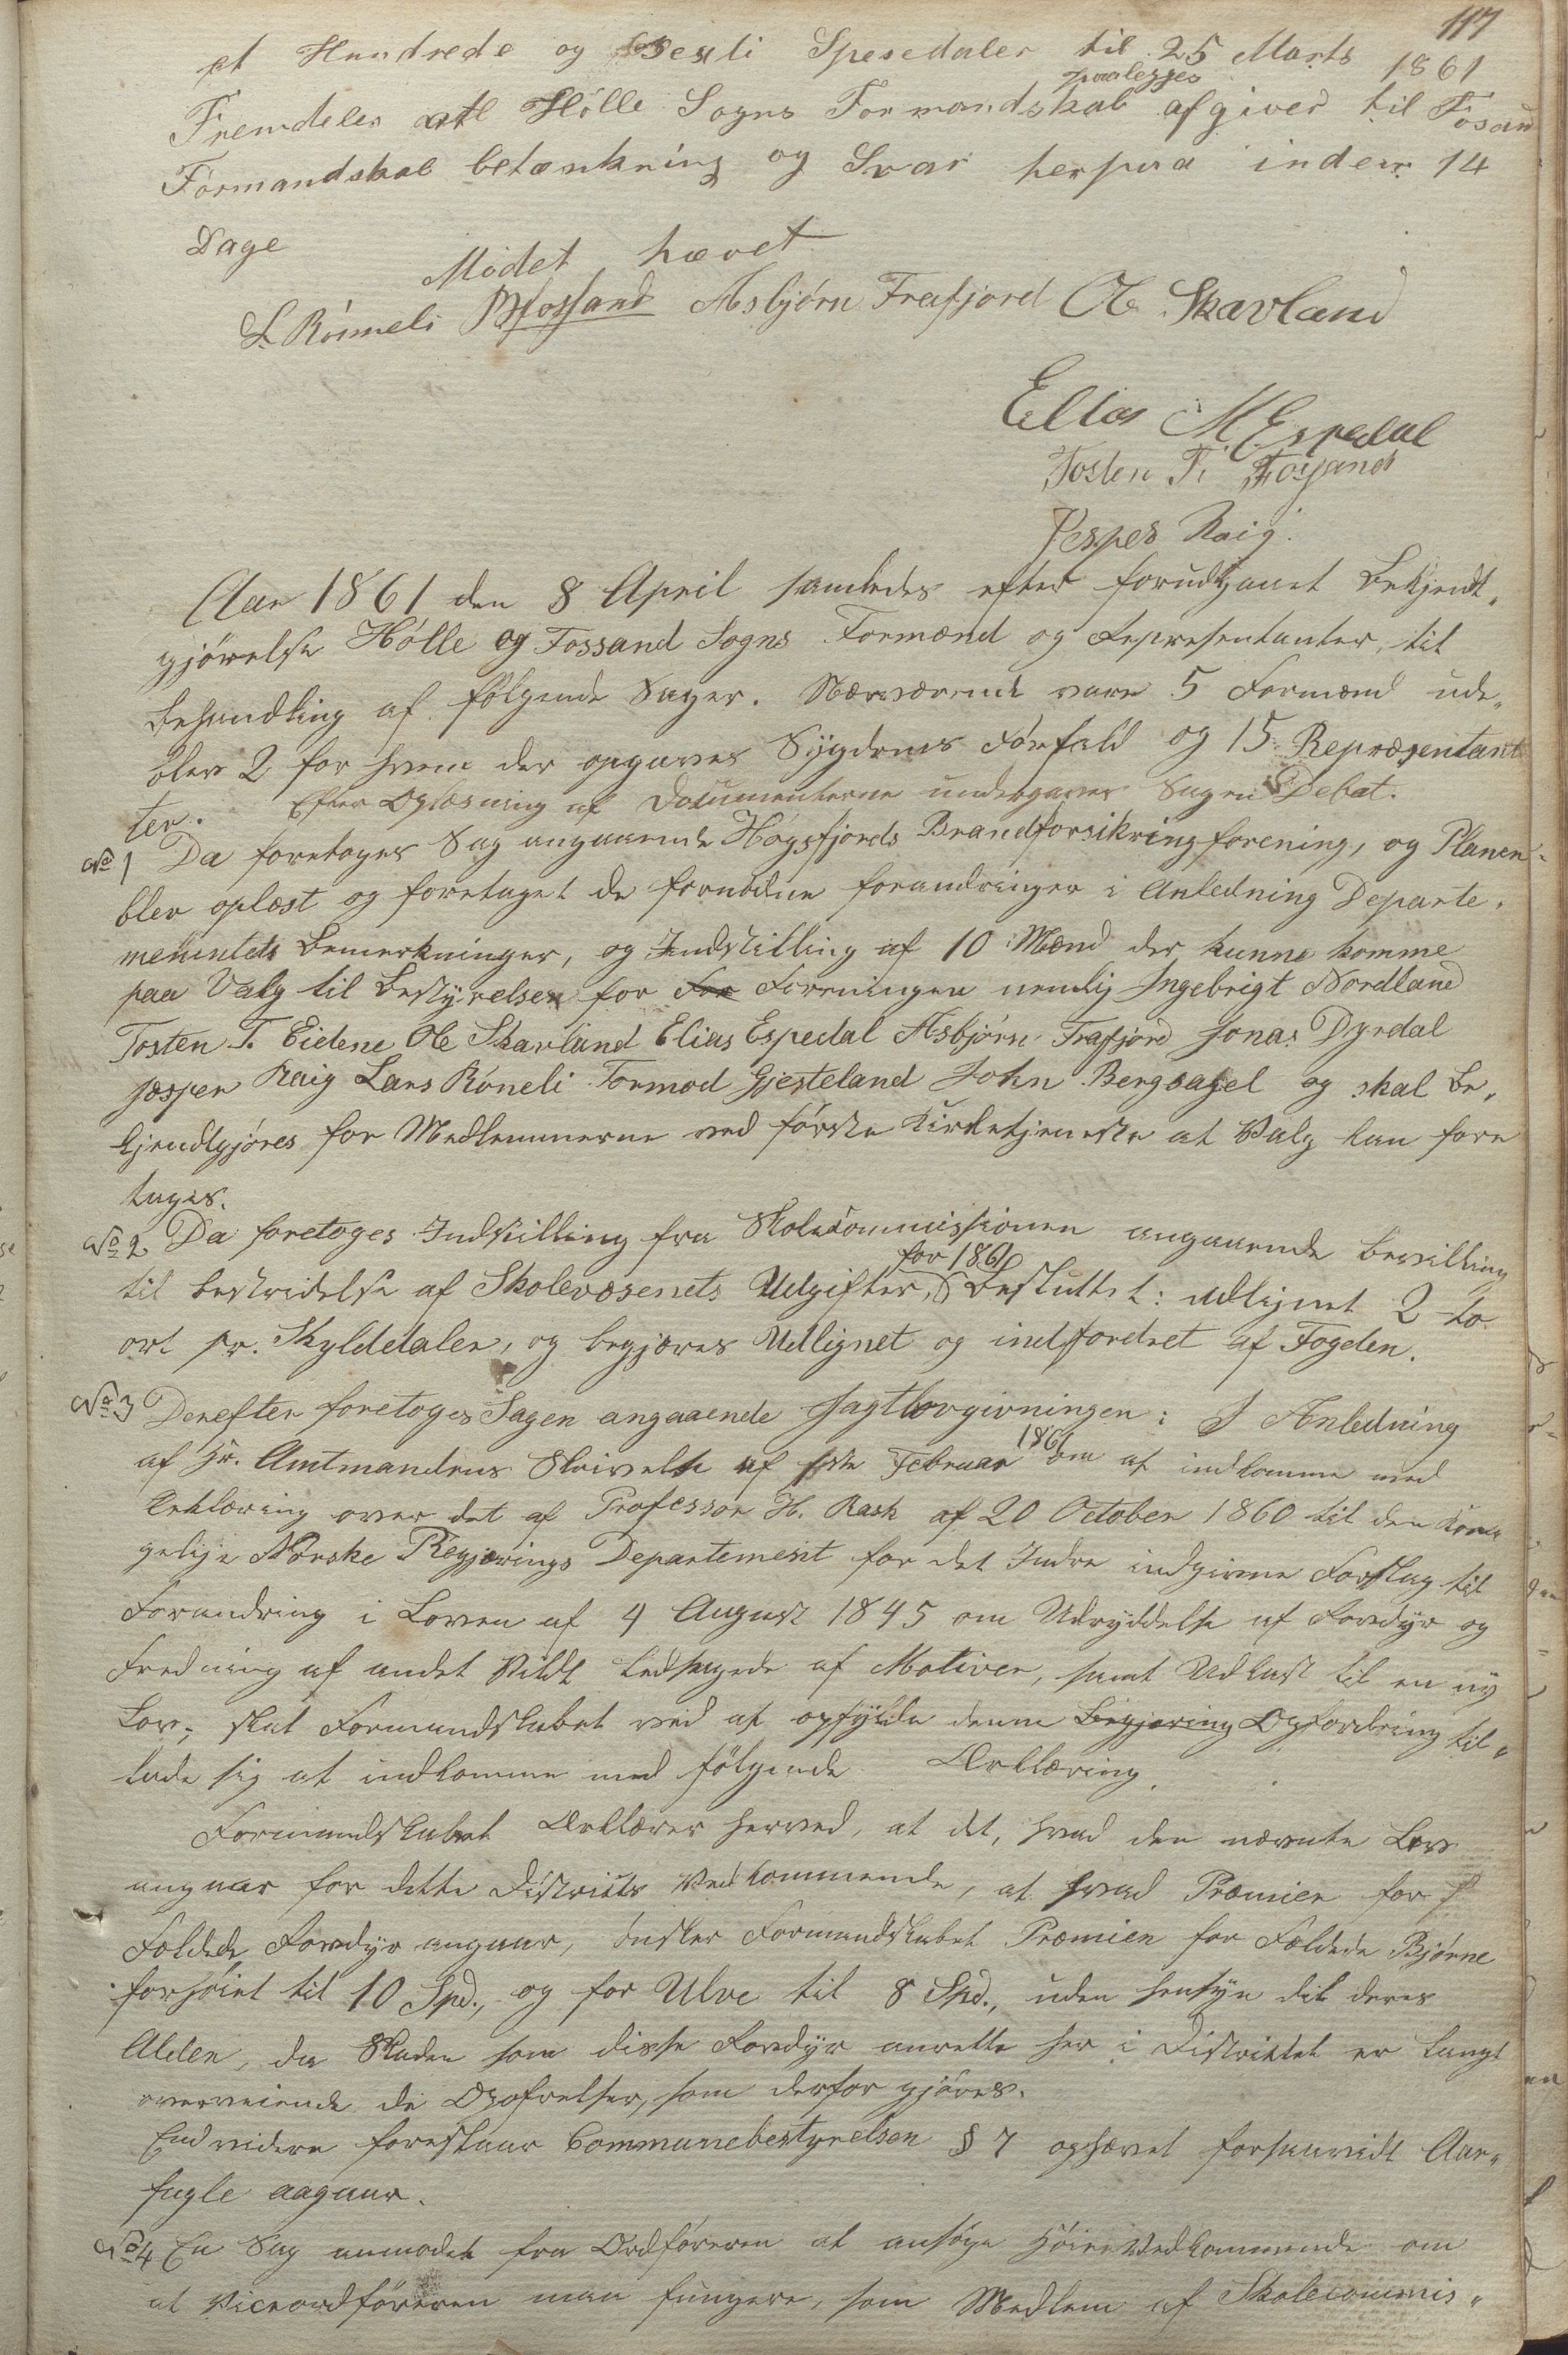 117
et Hundrede og Sexti Spesedaler til 25 Marts 1861
Fremdeles at Hölle Sogns Formandskab paalegges afgives til Fosan
Formandskab betænkning og Svar herpaa inden 14
Dage
Mödet hævet
L. Rönneli Fossand Asbjörn Frafjord Ole Skavland
Elias M. Espedal
Tosten T. Fossand
Jesper Raig.
Aar 1861 den 8 April samledes efter forudgaaet Bekjendt„
gjörelse Hölle og Fossand Sogns Formænd og Representanter, til
Behandling af følgende Sager. Nærværende vare 5 Formænd ude„
blev 2 for hvem der opgaves Sÿgdoms Forfald og 15 Repræsentan
ter. Efter Oplæsning af Documenterne undergaves Sagen Debat.
No 1 Da foretoges Sag angaaende Högsfjords Brandforsikringforening, og Planen
blev oplæst og foretaget de fornödne forandringer i Anledning Departe„
mentets Bemerkninger, og Indstilling af 10 Mænd der kunne komme
paa Valg til Bestyrelsen for For Foreningen nemlig Ingebrigt Nordland
Tosten T. Eidene Ole Skavland Elias Espedal Asbjörn Frafjord Jonas Dyrdal
Jesper Raig Lars Röneli Tormod Gjesteland John Bergsagel og skal be„
kjendtgjöres for Medlemmerne ved förste Kirketjeneste at Valg kan fore
tages.
No 2 Da foretoges Indstilling fra Skolecommissionen angaaende bevilling
til bestridelse af Skolevæsenets Udgifter for 1861 Besluttet: udlignet 2 to
ort pr. Skylddaler, og begjæres Udlignet og indfordret af Fogden.
No 3 Derefter foretoges Sagen angaaende Jagtlovgivningen: I Anledning
af Hr. Amtmandens Skrivelse af Februar 1861 om at indkomme med
Erklæring over det af Professor H. Rask af 20 October 1860 til den Kon„
gelige Norske Regjerings Departement for det Indre indgivne Forslag til
Forandring i Loven af 4 August 1845 om Udryddelse af Rovdÿr og
Fredning af andet Vildt ledsagede af Motiver, samt Udkast til en nÿ
Lov; skal Formandskabet ved at opfÿlde denne Begjæring Opfordring til„
lade sig at indkomme med fölgende Erklæring.
Formandskabet Erklærer herved, at det, hvad den nævnte Lov
angaar for dette Districts Vedkommende, at hvad Præmier for
Fældede Rovdÿr angaar, önsker Formandskabet Præmien for Fældede Bjørne
forhöiet til 10 Spd., og for Ulve til 8 Spd., uden hensÿn til deres
Alder, da Skaden som disse Rovdÿr anrette her i Districtet er langt
overveiende de Opofrelser, som derfor gjöres.
Endvidere foreslaar Communebestyrelsen § 7 ophævet forsaavidt Aar„
fugle aagaar.
No 4 En Sag anmodet fra Ordföreren at ansöge Höie Vedkommende om
at Viceordföreren maa fungere, som Medlem af Skolecommis„